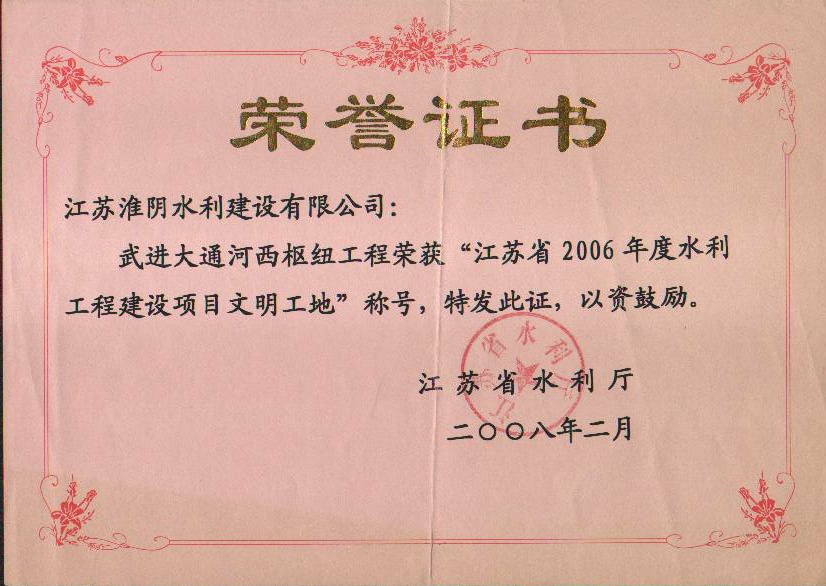 荣誉证书
江苏淮阴水利建设有限公司：
武进大通河西枢纽工程荣获“江苏省 2006 年度水利
工程建设项目文明工地”称号，特发此证，以资鼓励。
江苏省水利厅
二〇〇八年二月